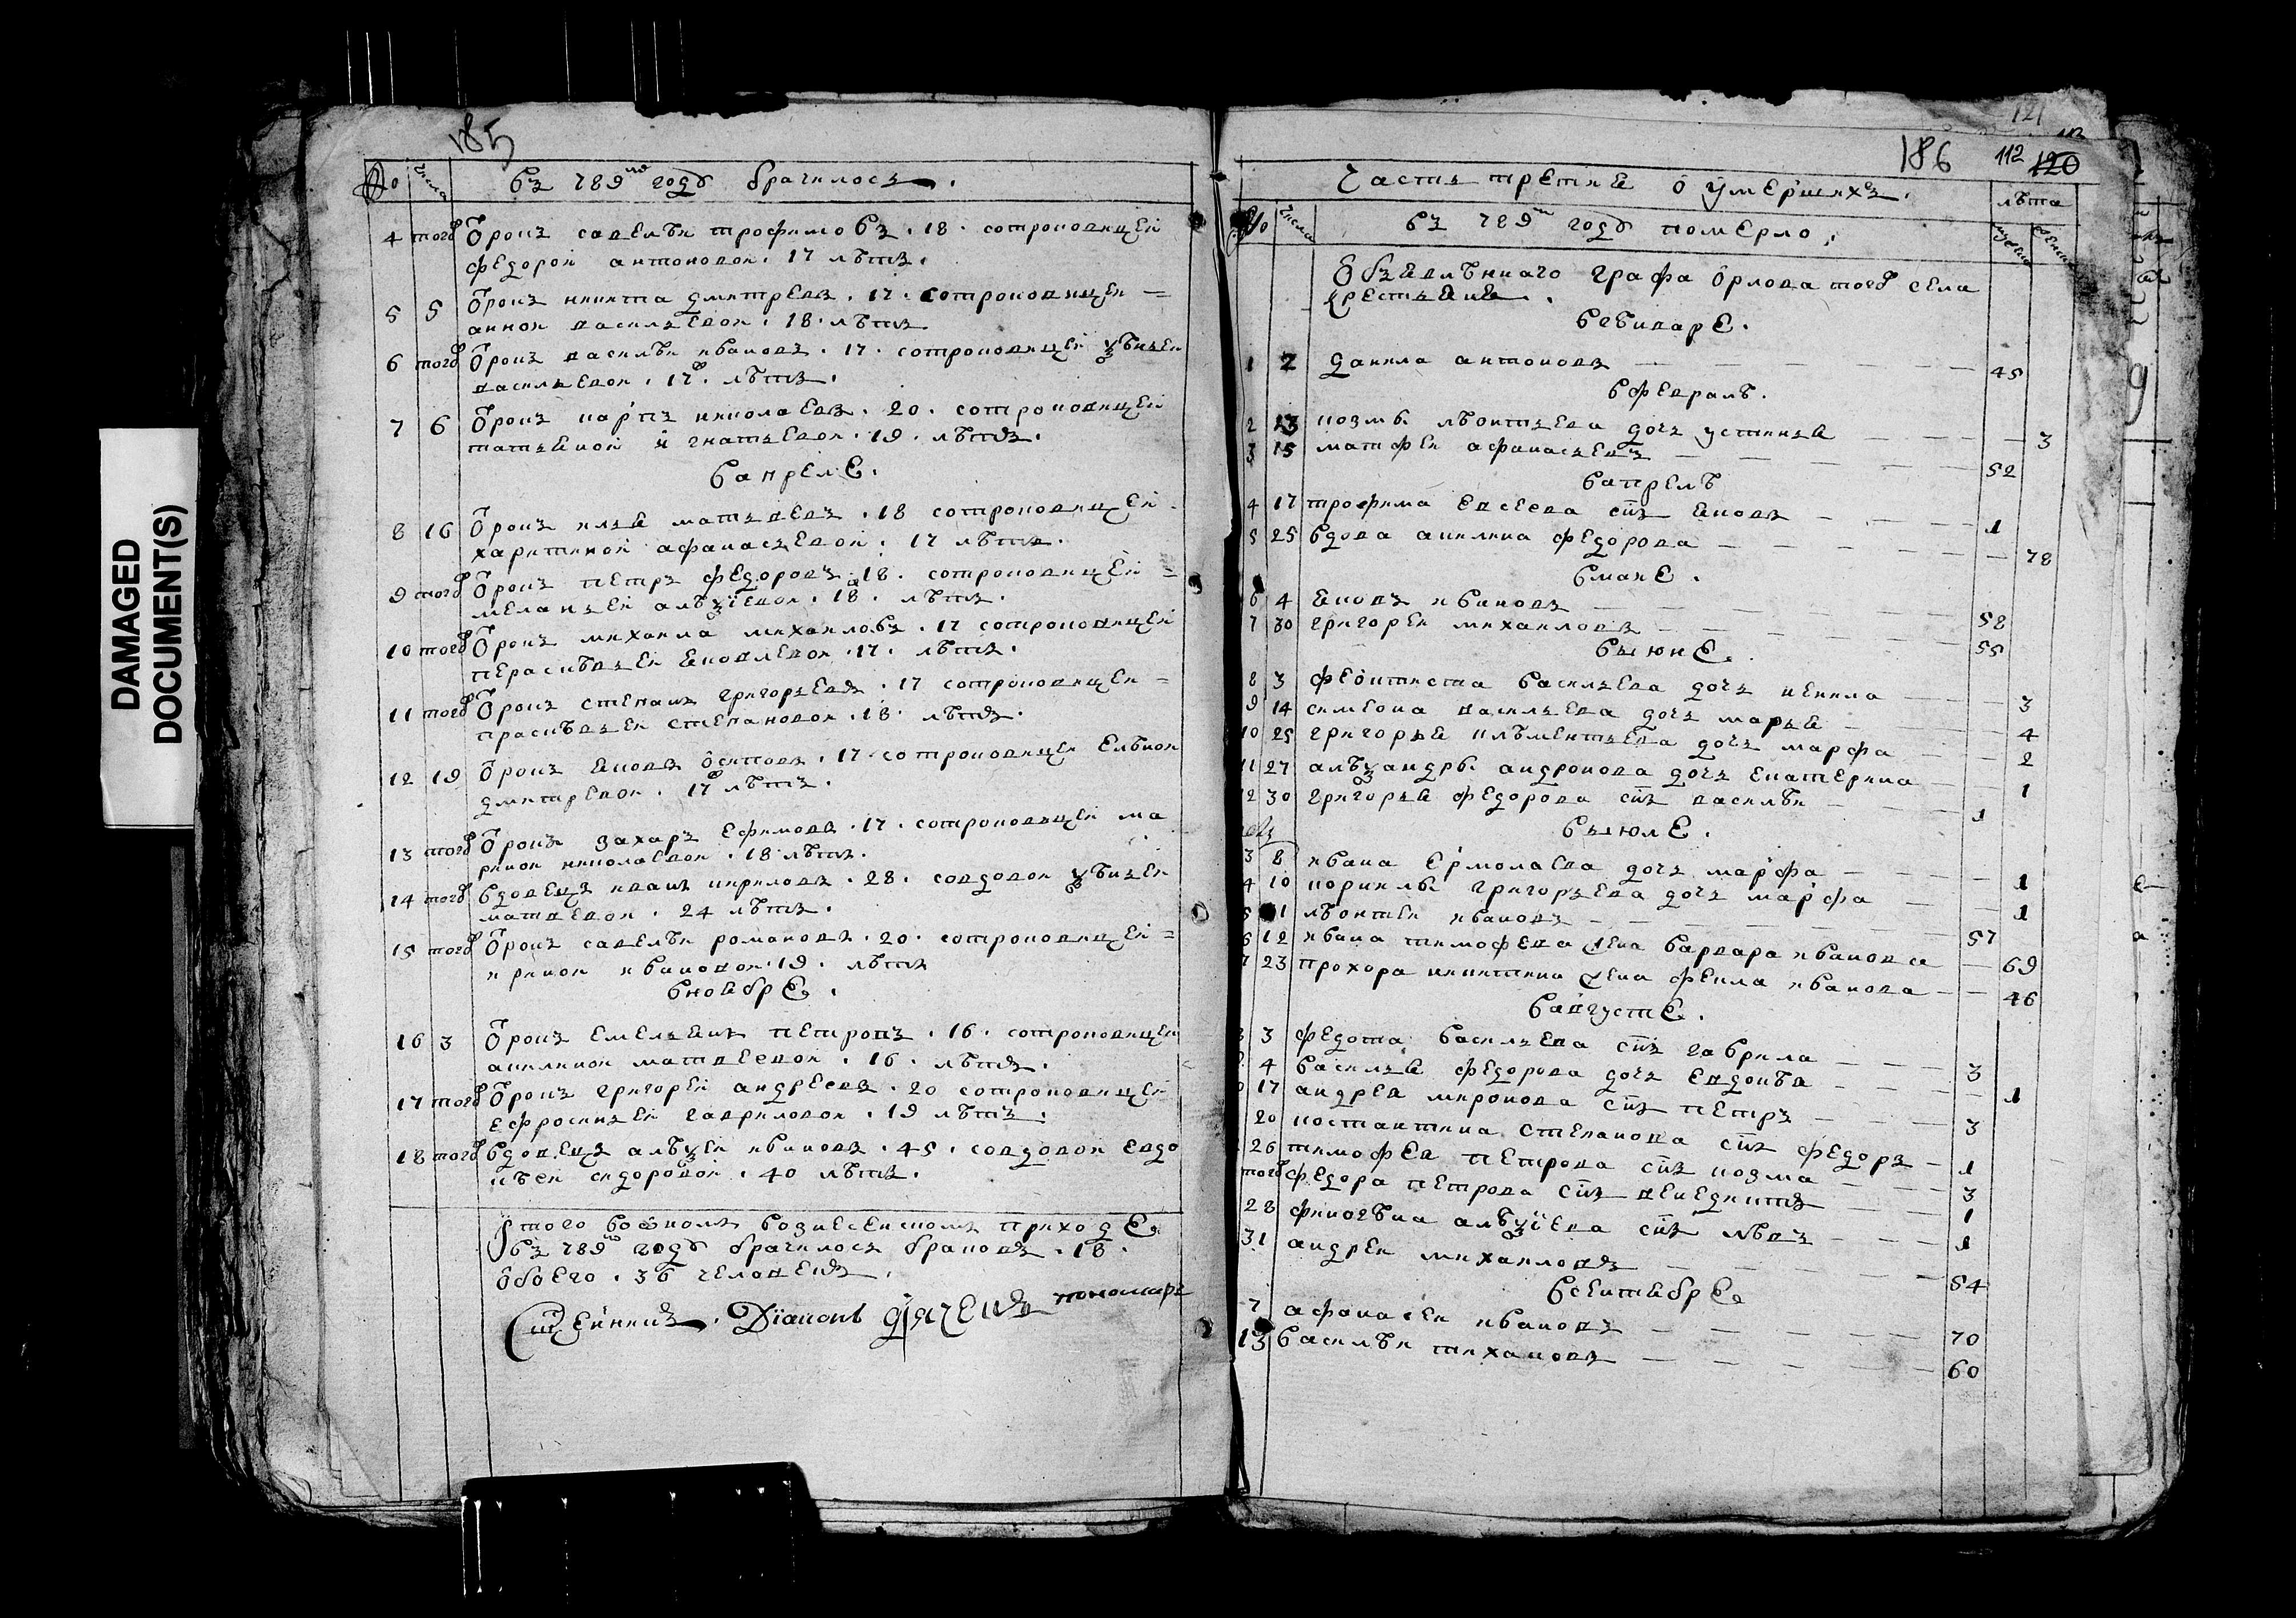 DAMAGED
DOCUMENT(S)
185
№ числа въ 789мъ годѣ брачилось
4 того Ѿрокъ савелѣи трофимовъ . 18 . сотроковицеи
федорои антоновои . 17 лѣтъ .
5 5 Ѿрокъ никита дмитревъ . 17 . сотроковицеи =
аннои васильевои . 18 . лѣтъ
6 того Ѿрокъ василѣи ивановъ . 17 . сотроковицеи
васильевои . 17 . лѣтъ .
7 6 Ѿрокъ карпъ николаевъ . 20 . сотроковицеи
татьянои игнатьевои . 19 . лѣтъ .
вапреле .
8 16 Ѿрокъ илья матьвевъ . 18 сотроковицеи .
харитинои афанасьевои . 17 лѣтъ .
9 того Ѿрокъ петръ федоровъ . 18 . сотроковицеи =
меланьеи алѣѯѣевои . 18 . лѣтъ .
10 того Ѿрокъ михаила михаиловъ . 17 сотроковицеи
перасковьеи яковлевои . 17 . лѣтъ .
11 того Ѿрокъ степанъ григорьевъ . 17 сотроковицеи =
прасковьеи степановои . 18 . лѣтъ .
12 19 Ѿрокъ яковъ осиповъ . 17 . сотроковицеи елѣнои
дмитревои . 17 лѣтъ .
13 того Ѿрокъ захаръ ефимовъ . 17 . сотроковицеи ма
риеи николаевои . 18 лѣтъ .
14 того вдовецъ иванъ кириловъ . 28 . совдовои
матвевои . 24 лѣтъ .
15 того Ѿрокъ савелѣи романовъ . 20 . сотроковицеи =
ириною ивановои . 19 . лѣтъ
вноябре .
16 3 Ѿрокъ емельянъ петровъ . 16 . сотроковицеи
акилинои матвеевои . 16 . лѣтъ .
17 того Ѿрокъ григореи андреевъ . 20 сотроковицеи
ефросиньеи гавриловои . 19 лѣтъ .
18 того вдовецъ алѣѯеи ивановъ . 45 . совдовои евдо
кѣеи сидоровои . 40 лѣтъ .
Итого воѡномъ вознесенскомъ приходе
въ 789мъ годѣ брачилось браковъ . 18 .
обоего . 36 человекъ .
Сщенникъ . Dїаконъ дїячекъ пономарь
121
186 112 120
Часть третия о умершихъ .
№ числа въ 789мъ годѣ померло . лѣта
мужеска женска
Объявлѣннаго графа орлова того села
крестьяня .
вгѣнваре .
1 2 данила антоновъ 45
вфевралѣ .
2 13 козмы лѣонтьева дочь устинья 3
3 15 матфеи афанасьевъ 52
вапрелѣ
4 17 трофима евсеева сн҃ъ яковъ 1
5 25 вдова акилина федорова 78
вмаие .
6 4 яковъ ивановъ 58
7 30 григореи михаиловъ 55
въиюне .
8 3 феоктиста васильева дочь некила 3
9 14 симеона васильева дочь марья 4
10 25 григорья клѣментьева дочь марфа 2
11 27 алѣѯандры андронова дочь екатерина 1
12 30 григорья федорова сн҃ъ василѣи 1
въиюле .
3 8 ивана ермолаева дочь марфа 1
4 10 корнилы григорьева дочь марфа 1
лѣонтеи ивановъ 57
6 12 ивана тимофева жена варвара иванова 69
7 23 прохора никитина жена фекла иванова 46
вавгусте .
3 федота васильева сн҃ъ гаврила 3
4 василья федорова дочь евдокѣя 1
17 андрея миронова сн҃ъ петръ 3
20 костантина степанова сн҃ъ федоръ 1
26 тимофея петрова сн҃ъ козма 3
того федора петрова сн҃ъ венедиктъ 1
28 финогѣна алѣѯѣева сн҃ъ лѣвъ 1
31 андреи михаиловъ 54
всентябре
7 афонасеи ивановъ 70
13 василѣи тихановъ 60